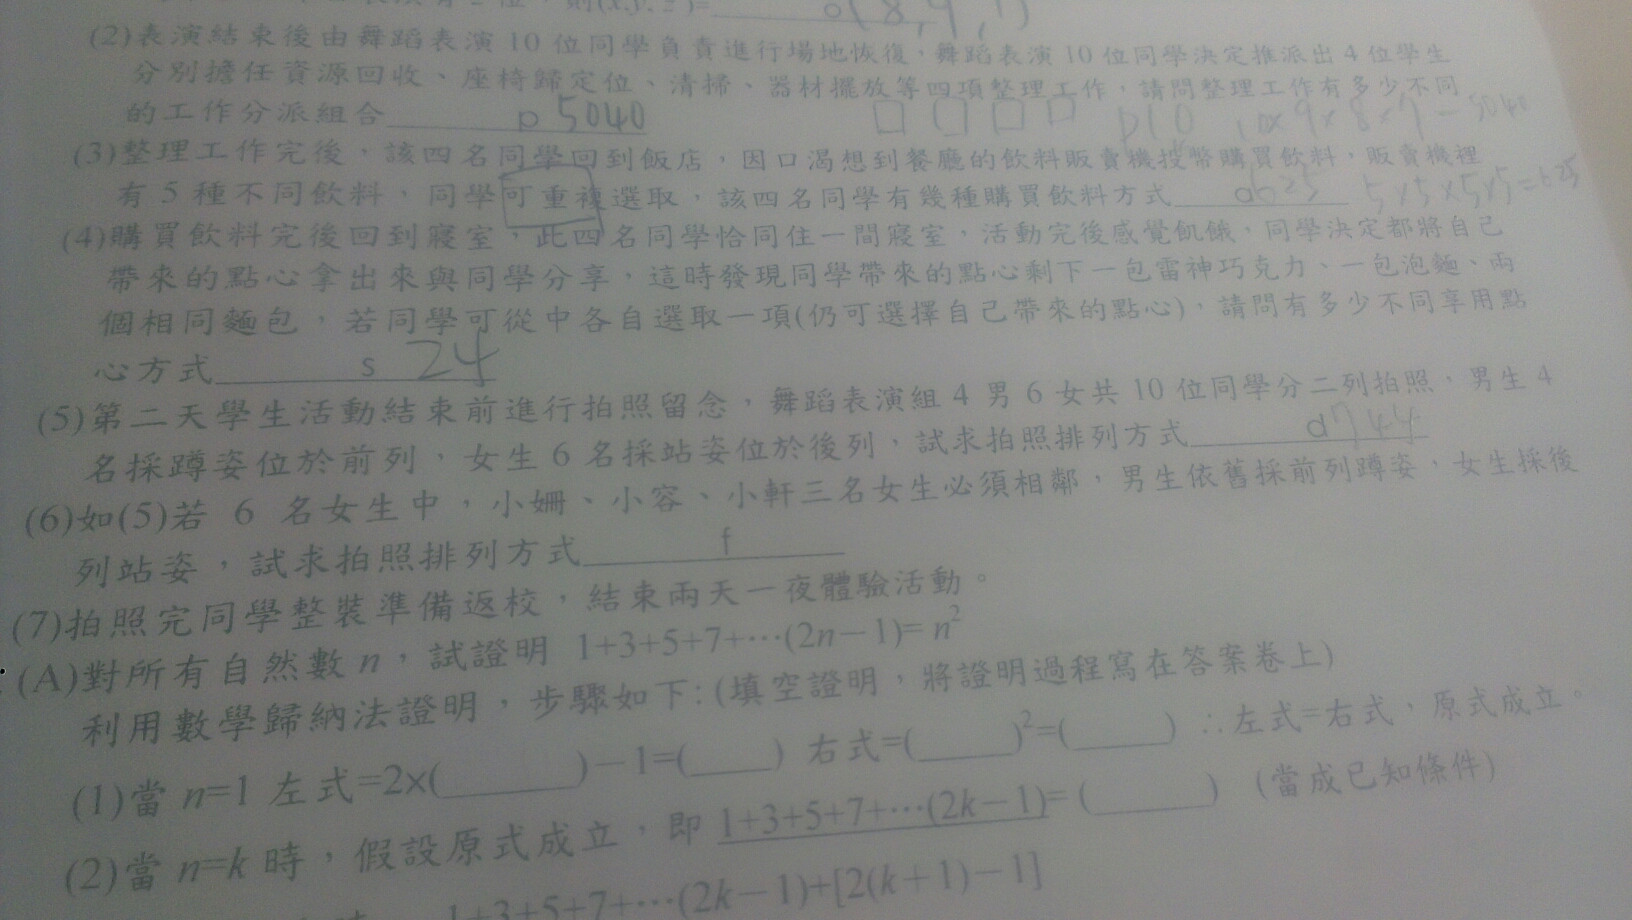 則(x,y,z)= o(8,9,1)
(2)表演結束後由舞蹈表演10位同學負責進行場地恢復，舞蹈表演10位同學決定推派出4位學生
分別擔任資源回收、座椅歸定位、清掃、器材擺放等四項整理工作，請問整理工作有多少不同
的工作分派組合 p 5040 □ □ □ □ 10×9×8×7=5040
(3)整理工作完後，該四名同學回到飯店，因口渴想到餐廳的飲料販賣機投幣購買飲料，販賣機裡
有5種不同飲料、同學可重複選取，該四名同學有幾種購買飲料方式 a625 5×5×5×5=625
(4)購買飲料完後回到寢室，此四名同學恰同住一間寢室，活動完後感覺飢餓，同學決定都將自己
帶來的點心拿出來與同學分享，這時發現同學帶來的點心剩下一包雷神巧克力、一包泡麵、兩
個相同麵包，若同學可從中各自選取一項(仍可選擇自己帶來的點心)，請問有多少不同享用點
心方式 s 24
(5)第二天學生活動結束前進行拍照留念，舞蹈表演組4男6女共10位同學分二列拍照，男生4
名採蹲姿位於前列，女生6名採站姿位於後列，試求拍照排列方式 d744
(6)如(5)若 6 名女生中，小姍、小容、小軒三名女生必須相鄰，男生依舊採前列蹲姿，女生採後
列站姿，試求拍照排列方式 f
(7)拍照完同學整裝準備返校，結束兩天一夜體驗活動。
(A)對所有自然數n，試證明 1+3+5+7+⋯(2n−1)= n²
利用數學歸納法證明，步驟如下:(填空證明，將證明過程寫在答案卷上)
(1)當 n=1 左式=2×(______)−1=(____) 右式=(_____)²=(_____) ∴左式=右式，原式成立。
(2)當 n=k 時，假設原式成立，即 1+3+5+7+⋯(2k−1)= (______) (當成已知條件)
1+3+5+7+⋯(2k−1)+[2(k+1)−1]